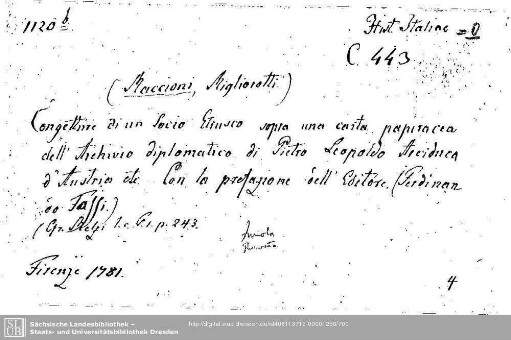 1120 b
Hist. Italiae = 0
C. 443
(Maccioni, Migliorotti)
Congetture di un Socio Etrusco sopra una carta papiracea
dell' Archivio diplomatico di Pietro Leopoldo Arciduca
d'Austria etc. Con la prefazione dell' Editore. (Ferdinan
do Fassi.)
(Cf. Melzi l. c. T. 1. p. 243.
Firenze 1781.
4
Sächsische Landesbibliothek –
Staats- und Universitätsbibliothek Dresden